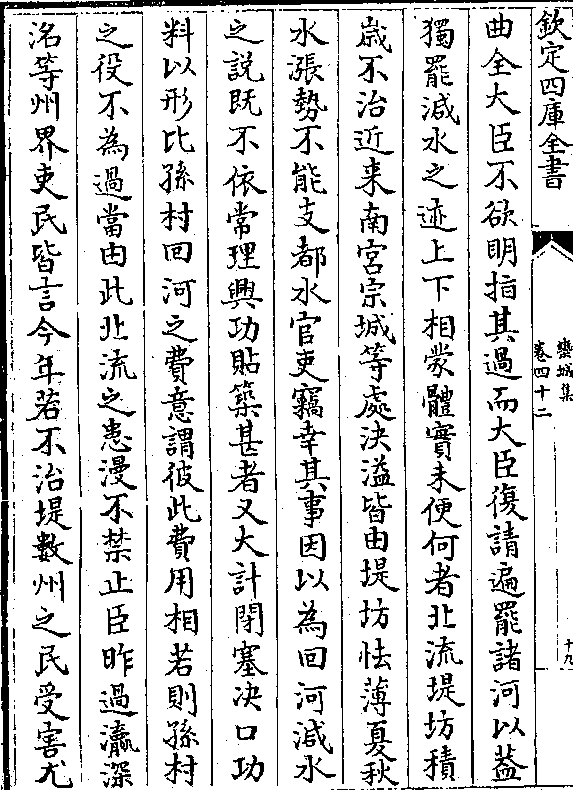 欽定四庫全書
欒城集
卷四十二
十九
曲全大臣不欲明指其過而大臣復請遍罷諸河以葢
獨罷減水之迹上下相蒙體實未便何者北流堤坊積
嵗不治近来南宫宗城等處決溢皆由堤坊怯薄夏秋
水漲勢不能支都水官吏竊幸其事因以為回河減水
之説既不依常理興功貼築甚者又大計閉塞决口功
料以形比孫村回河之費意謂彼此費用相若則孫村
之役不為過當由此北流之患漫不禁止臣昨過瀛深
洺等州界吏民皆言今年若不治堤數州之民受害尤